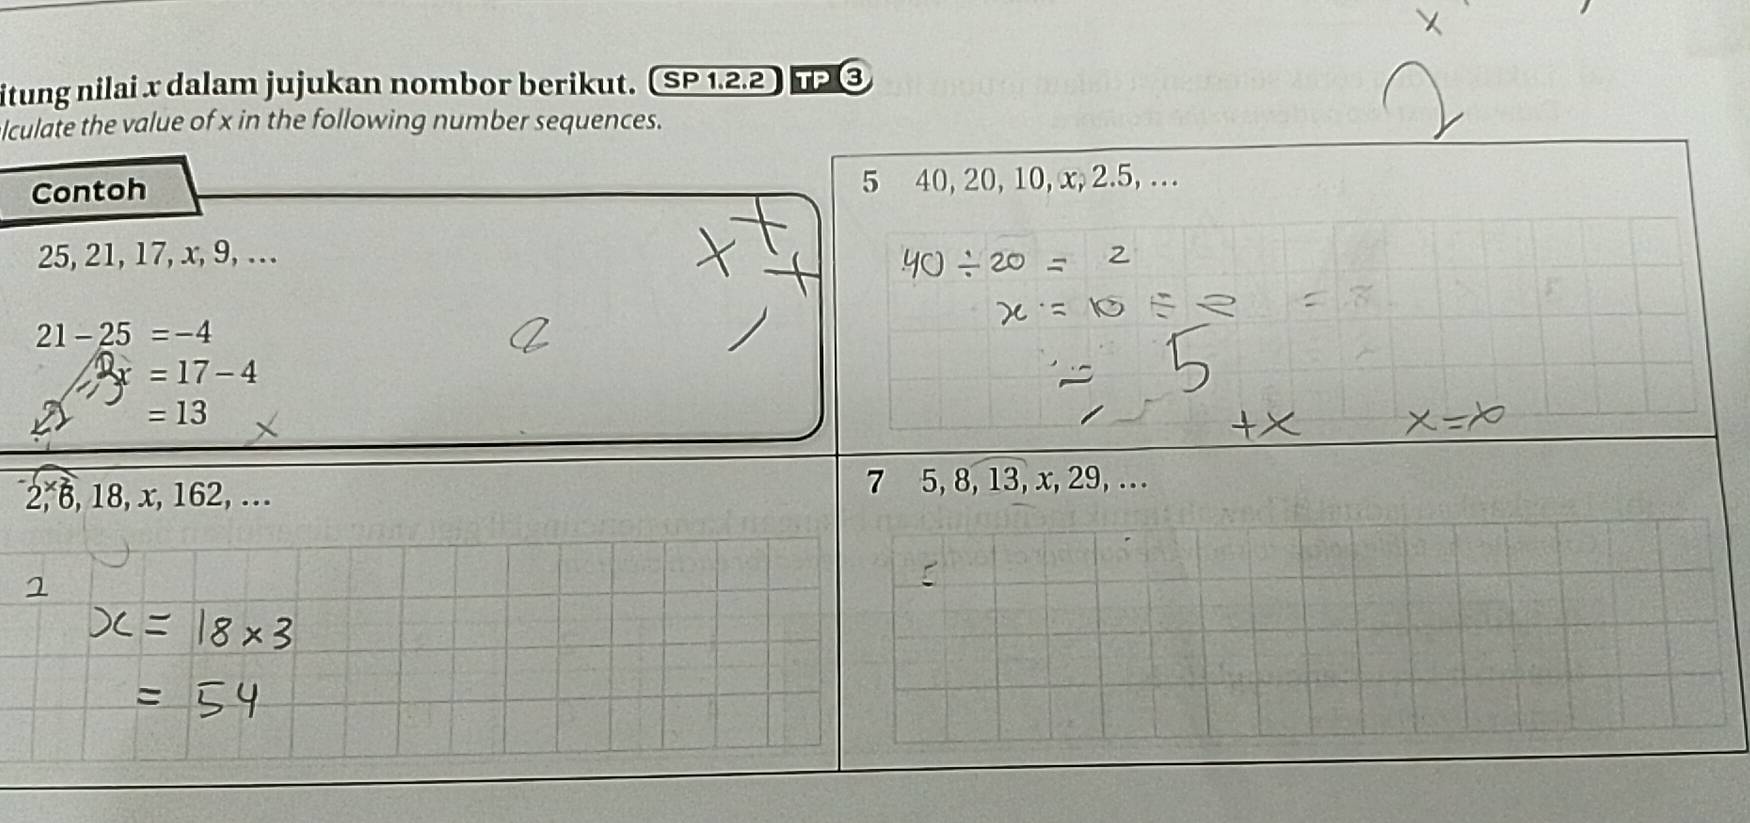 itung nilai x dalam jujukan nombor berikut. SP 1.2.2 TP 3
lculate the value of x in the following number sequences.
Contoh
25, 21, 17, x, 9, …
21 – 25 = –4
x = 17 – 4
= 13
5 40, 20, 10, x, 2.5, …
40 ÷ 20 = 2
x = 10 ÷ 2
= 5
+x x=x
2, 6, 18, x, 162, …
2
x = 18 × 3
= 54
7 5, 8, 13, x, 29, …